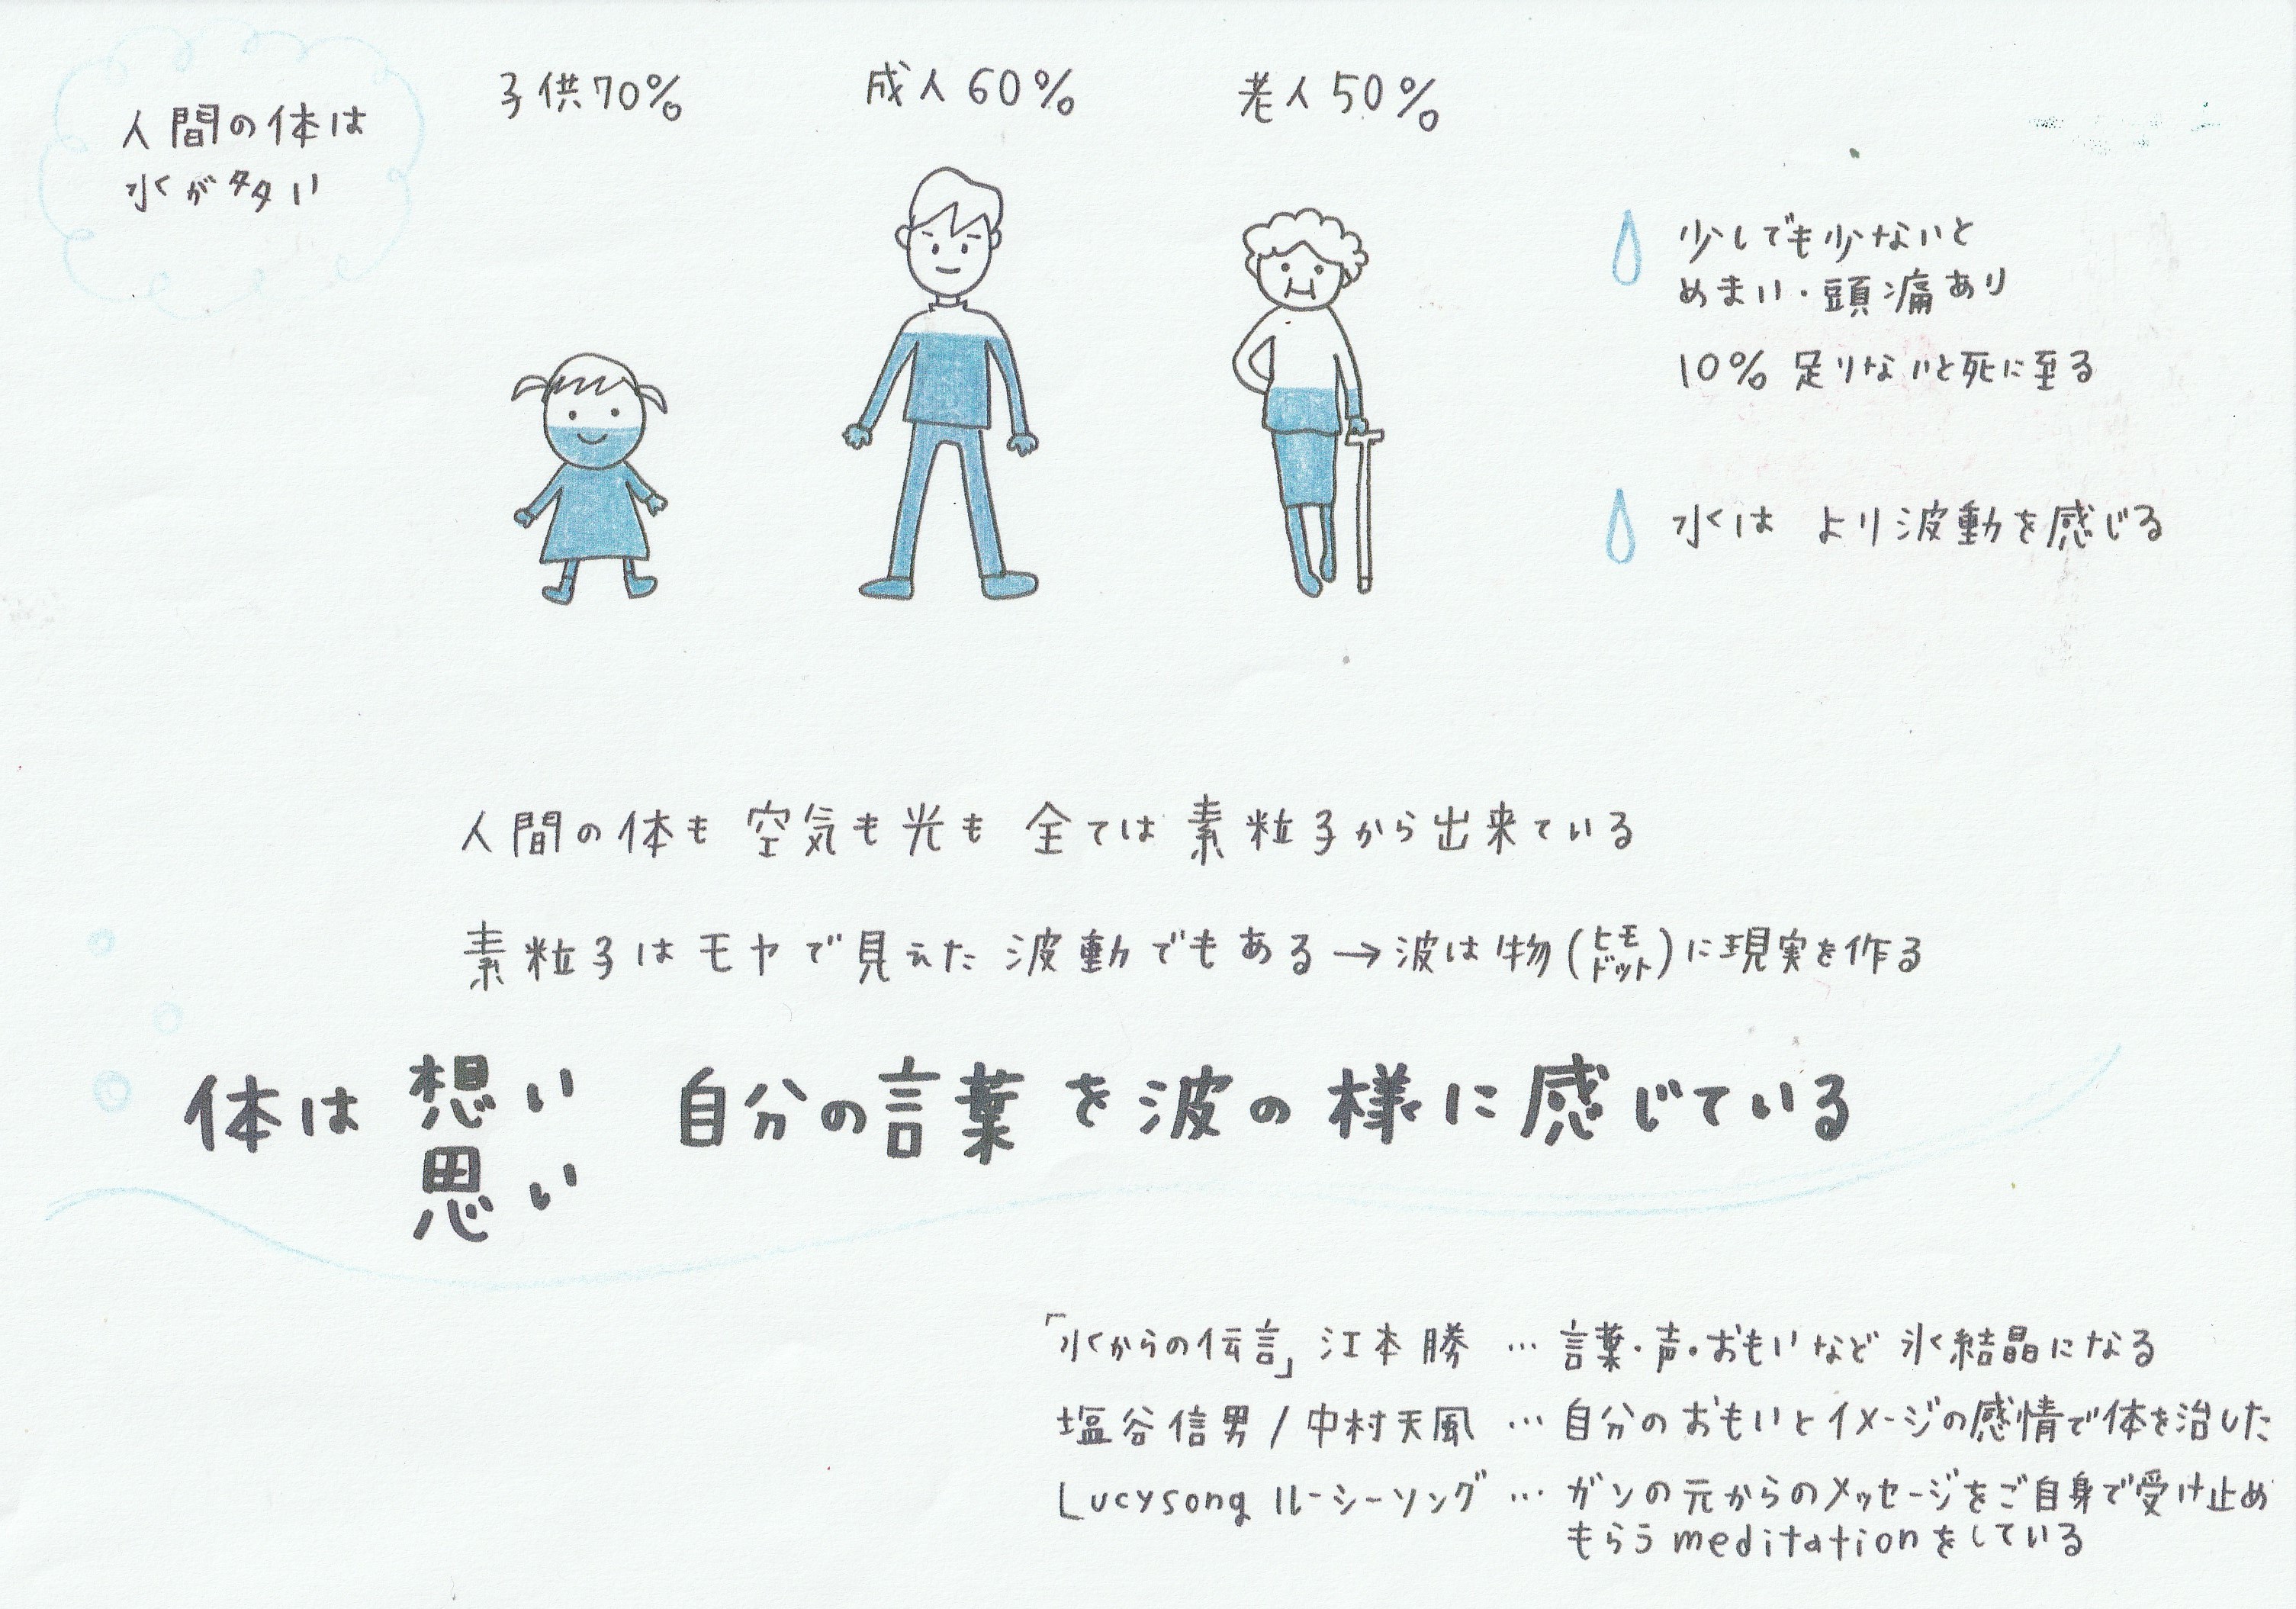 人間の体は
水が多い
子供70%
成人60%
老人50%
少しでも少ないと
めまい・頭痛あり
10% 足りないと死に至る
水は より波動を感じる
人間の体も 空気も光も 全ては 素粒子から出来ている
素粒子はモヤで見えた波動でもある→波は物(ヒモ ドット)に現実を作る
体は 想い 自分の言葉を波の様に感じている
思い
「水からの伝言」江本 勝 … 言葉・声・おもいなど 氷結晶になる
塩谷信男/中村天風 … 自分のおもいとイメージの感情で体を治した
Lucysong ルーシーソング … ガンの元からのメッセージをご自身で受け止め
もらう meditationをしている